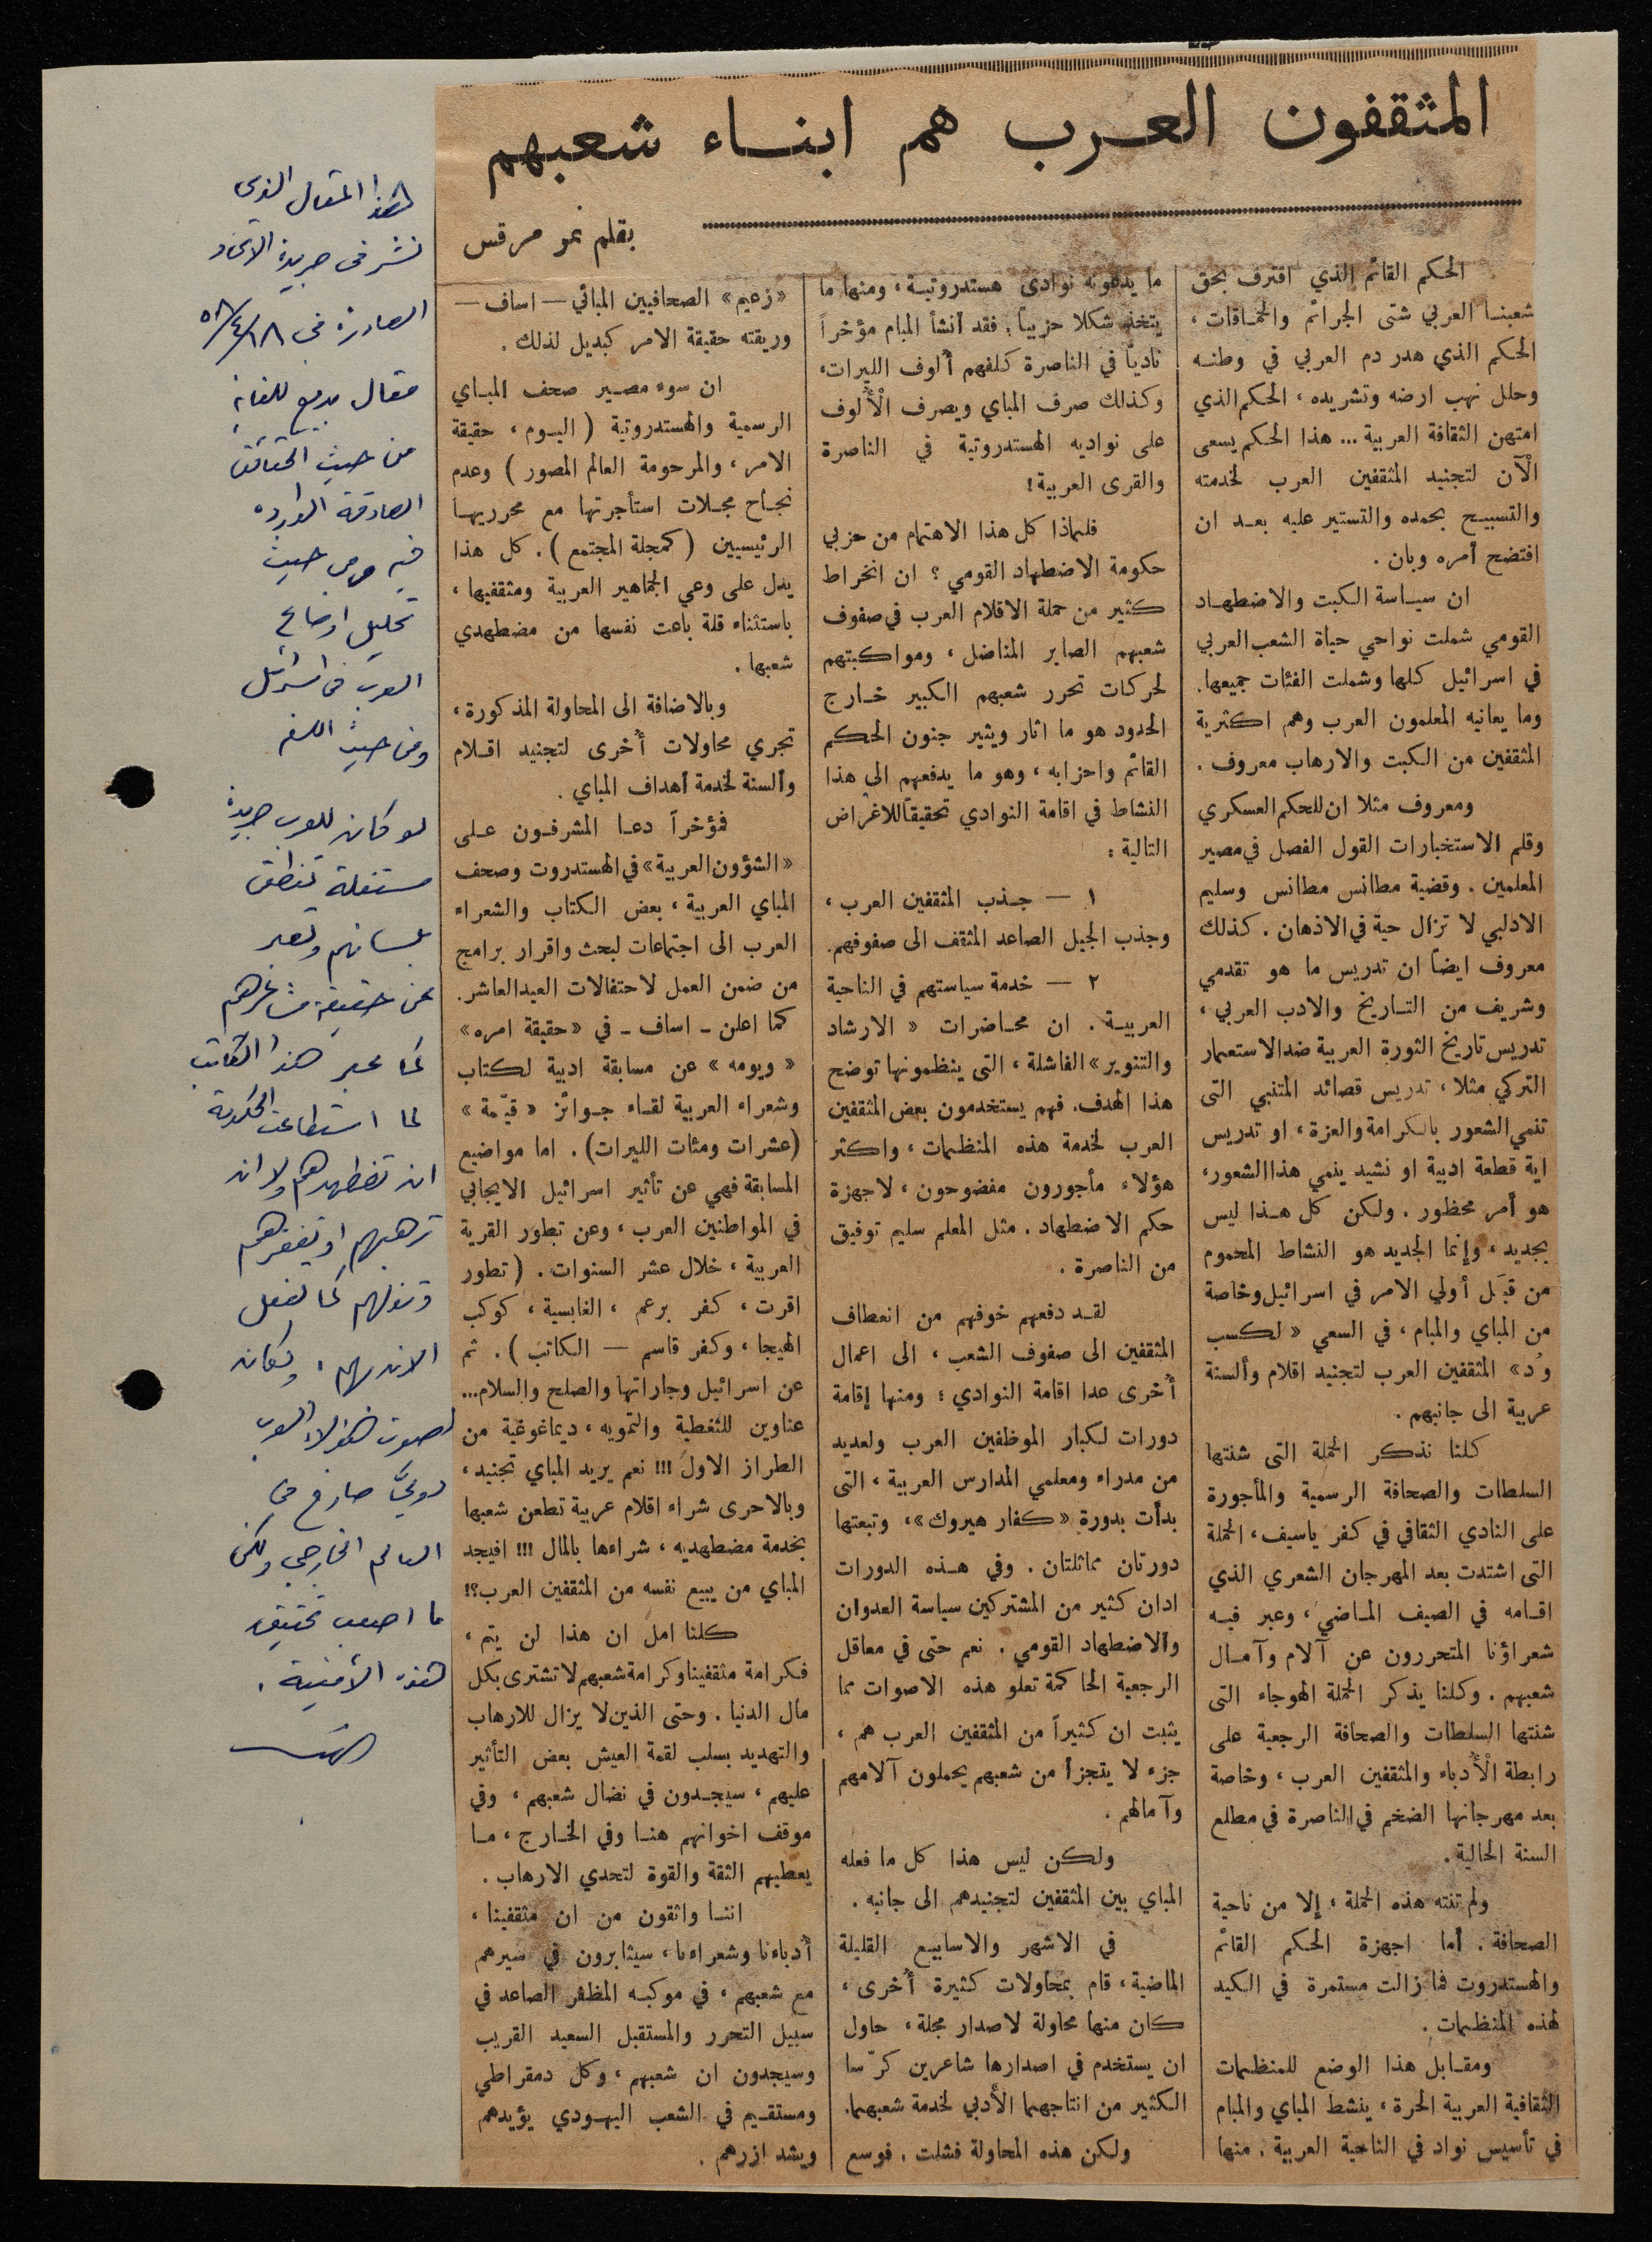 المثقفون العرب هم ابناء شعبهم
بقلم نمر مرقس
الحكم القائم الذي اقترف بحق
شعبنا العربي شتى الجرائم والحماقات،
الحكم الذي هدر دم العربي في وطنه
وحلل نهب ارضه وتشريده، الحكم الذي
امتهن الثقافة العربية... هذا الحكم يسعى
الآن لتجنيد المثقفين العرب لخدمته
والتسبيح بحمده والتستير عليه بعد ان
افتضح أمره وبان.
ان سياسة الكبت والاضطهاد
القومي شملت نواحي حياة الشعب العربي
في اسرائيل كلها وشملت الفئات جميعها.
وما يعانيه المعلمون العرب وهم اكثرية
المثقفين من الكبت والارهاب معروف.
ومعروف مثلا ان للحكم العسكري
وقلم الاستخبارات القول الفصل في مصير
المعلمين. وقضية مطانس مطانس وسليم
الادلبي لا تزال حية في الاذهان. كذلك
معروف ايضاً ان تدريس ما هو تقدمي
وشريف من التاريخ والادب العربي،
تدريس تاريخ الثورة العربية ضد الاستعمار
التركي مثلا، تدريس قصائد المتنبي التى
تنمي الشعور بالكرامة والعزة، او تدريس
اية قطعة ادبية او نشيد ينمي هذا الشعور،
هو أمر محظور. ولكن كل هذا ليس
بجديد، وإنما الجديد هو النشاط المحموم
من قبَل أولي الامر في اسرائيل وخاصة
من المباي والمبام، في السعي «لكسب
وُد» المثقفين العرب لتجنيد اقلام وألسنة
عربية الى جانبهم.
كلنا نذكر الحملة التى شنتها
السلطات والصحافة الرسمية والمأجورة
على النادي الثقافي في كفر ياسيف، الحملة
التى اشتدت بعد المهرجان الشعري الذي
اقامه في الصيف الماضي، وعبر فيه
شعراؤنا المتحررون عن آلام وآمال
شعبهم. وكلنا يذكر الحملة الهوجاء التى
شنتها السلطات والصحافة الرجعية على
رابطة الأُدباء والمثقفين العرب، وخاصة
بعد مهرجانها الضخم في الناصرة في مطلع
السنة الحالية.
ولم تنته هذه الحملة، إلا من ناحية
الصحافة. أما اجهزة الحكم القائم
والهستدروت فما زالت مستمرة في الكيد
لهذه المنظمات.
ومقابل هذا الوضع للمنظمات
الثقافية العربية الحرة، ينشط المباي والمبام
في تأسيس نواد في الناحية العربية. منها
ما يدعونه نوادى هستدروتية، ومنها ما
يتخذ شكلا حزبياً، فقد أنشأ المبام مؤخراً
نادياً في الناصرة كلفهم أُلوف الليرات،
وكذلك صرف المباي ويصرف الأُلوف
على نواديه الهستدروتية في الناصرة
والقرى العربية!
فلماذا كل هذا الاهتمام من حزبي
حكومة الاضطهاد القومي؟ ان انخراط
كثير من حملة الاقلام العرب في صفوف
شعبهم الصابر المناضل، ومواكبتهم
لحركات تحرر شعبهم الكبير خارج
الحدود هو ما اثار ويثير جنون الحكم
القائم واحزابه، وهو ما يدفعهم الى هذا
النشاط في اقامة النوادي تحقيقاً للاغراض
التالية:
١ — جذب المثقفين العرب،
وجذب الجيل الصاعد المثقف الى صفوفهم.
٢ — خدمة سياستهم في الناحية
العربية. ان محاضرات «الارشاد
والتنوير» الفاشلة، التى ينظمونها توضح
هذا الهدف. فهم يستخدمون بعض المثقفين
العرب لخدمة هذه المنظمات، واكثر
هؤلاء مأجورون مفضوحون، لاجهزة
حكم الاضطهاد. مثل المعلم سليم توفيق
من الناصرة.
لقد دفعهم خوفهم من انعطاف
المثقفين الى صفوف الشعب، الى اعمال
أُخرى عدا اقامة النوادي؛ ومنها إقامة
دورات لكبار الموظفين العرب ولعديد
من مدراء ومعلمي المدارس العربية، التى
بدأت بدورة «كفار هيروك»، وتبعتها
دورتان مماثلتان. وفي هذه الدورات
ادان كثير من المشتركين سياسة العدوان
والاضطهاد القومي. نعم حتى في معاقل
الرجعية الحاكمة تعلو هذه الاصوات مما
يثبت ان كثيراً من المثقفين العرب هم،
جزء لا يتجزأ من شعبهم يحملون آلامهم
وآمالهم.
ولكن ليس هذا كل ما فعله
المباي بين المثقفين لتجنيدهم الى جانبه.
في الاشهر والاسابيع القليلة
الماضية، قام بمحاولات كثيرة أُخرى،
كان منها محاولة لاصدار مجلة، حاول
ان يستخدم في اصدارها شاعرين كرّسا
الكثير من انتاجهما الأَدبي لخدمة شعبهما.
ولكن هذه المحاولة فشلت. فوسع
«زعيم» الصحافيين المبائي — اساف —
وريقته حقيقة الامر كبديل لذلك.
ان سوء مصير صحف المباي
الرسمية والهستدروتية (اليوم، حقيقة
الامر، والمرحومة العالم المصور) وعدم
نجاح مجلات استأجرتها مع محرريها
الرئيسيين (كمجلة المجتمع). كل هذا
يدل على وعي الجماهير العربية ومثقفيها،
باستثناء قلة باعت نفسها من مضطهدي
شعبها.
وبالاضافة الى المحاولة المذكورة،
تجري محاولات أُخرى لتجنيد اقلام
وألسنة لخدمة أهداف المباي.
فمؤخراً دعا المشرفون على
«الشؤون العربية» في الهستدروت وصحف
المباي العربية، بعض الكتاب والشعراء
العرب الى اجتماعات لبحث واقرار برامج
من ضمن العمل لاحتفالات العيد العاشر.
كما اعلن ـ اساف ـ في «حقيقة امره»
«ويومه» عن مسابقة ادبية لكتاب
وشعراء العربية لقاء جوائز «قيّمة»
(عشرات ومئات الليرات). اما مواضيع
المسابقة فهي عن تأثير اسرائيل الايجابي
في المواطنين العرب، وعن تطور القرية
العربية، خلال عشر السنوات. (تطور
اقرت، كفر برعم، الغابسية، كوكب
الهيجا، وكفر قاسم — الكاتب). ثم
عن اسرائيل وجاراتها والصلح والسلام...
عناوين للتغطية والتمويه، ديماغوغية من
الطراز الاول !!! نعم يريد المباي تجنيد،
وبالاحرى شراء اقلام عربية تطعن شعبها
بخدمة مضطهديه، شراءها بالمال !!! افيجد
المباي من يبيع نفسه من المثقفين العرب؟!
كلنا امل ان هذا لن يتم،
فكرامة مثقفينا وكرامة شعبهم لا تشترى بكل
مال الدنيا. وحتى الذين لا يزال للارهاب
والتهديد بسلب لقمة العيش بعض التأثير
عليهم، سيجدون في نضال شعبهم، وفي
موقف اخوانهم هنا وفي الخارج، ما
يعطيهم الثقة والقوة لتحدي الارهاب.
اننا واثقون من ان مثقفينا،
أُدباءنا وشعراءنا، سيثابرون في سيرهم
مع شعبهم، في موكبه المظفر الصاعد في
سبيل التحرر والمستقبل السعيد القريب
وسيجدون ان شعبهم، وكل دمقراطي
ومستقيم في الشعب اليهودي يؤيدهم
ويشد ازرهم.
هذا المقال الذي
نشر في جريدة الاتحاد
الصادرة في ١٨/٤/٥٨
مقال بديع للغاية
من حيث الحقائق
الصادقة الواردة
فيه ومن حيث
تحليل اوضاع
العرب في اسرائيل
ومن حيث
لو كان للعرب جريدة
مستقلة تنطق
بلسانهم وتعبر
عن حقيقة مشاعرهم
كما عبر هذا الكاتب
لما استطاعت الحكومة
ان تضطهدهم ولا ان
ترهبهم او تفقرهم
وتذلهم كما تفعل
الان بهم، ولكان
لصوت هؤلاء العرب
دويّ صارخ في
العالم الخارجي ولكن
ما اصعب تحقيق
هذه الامنية.